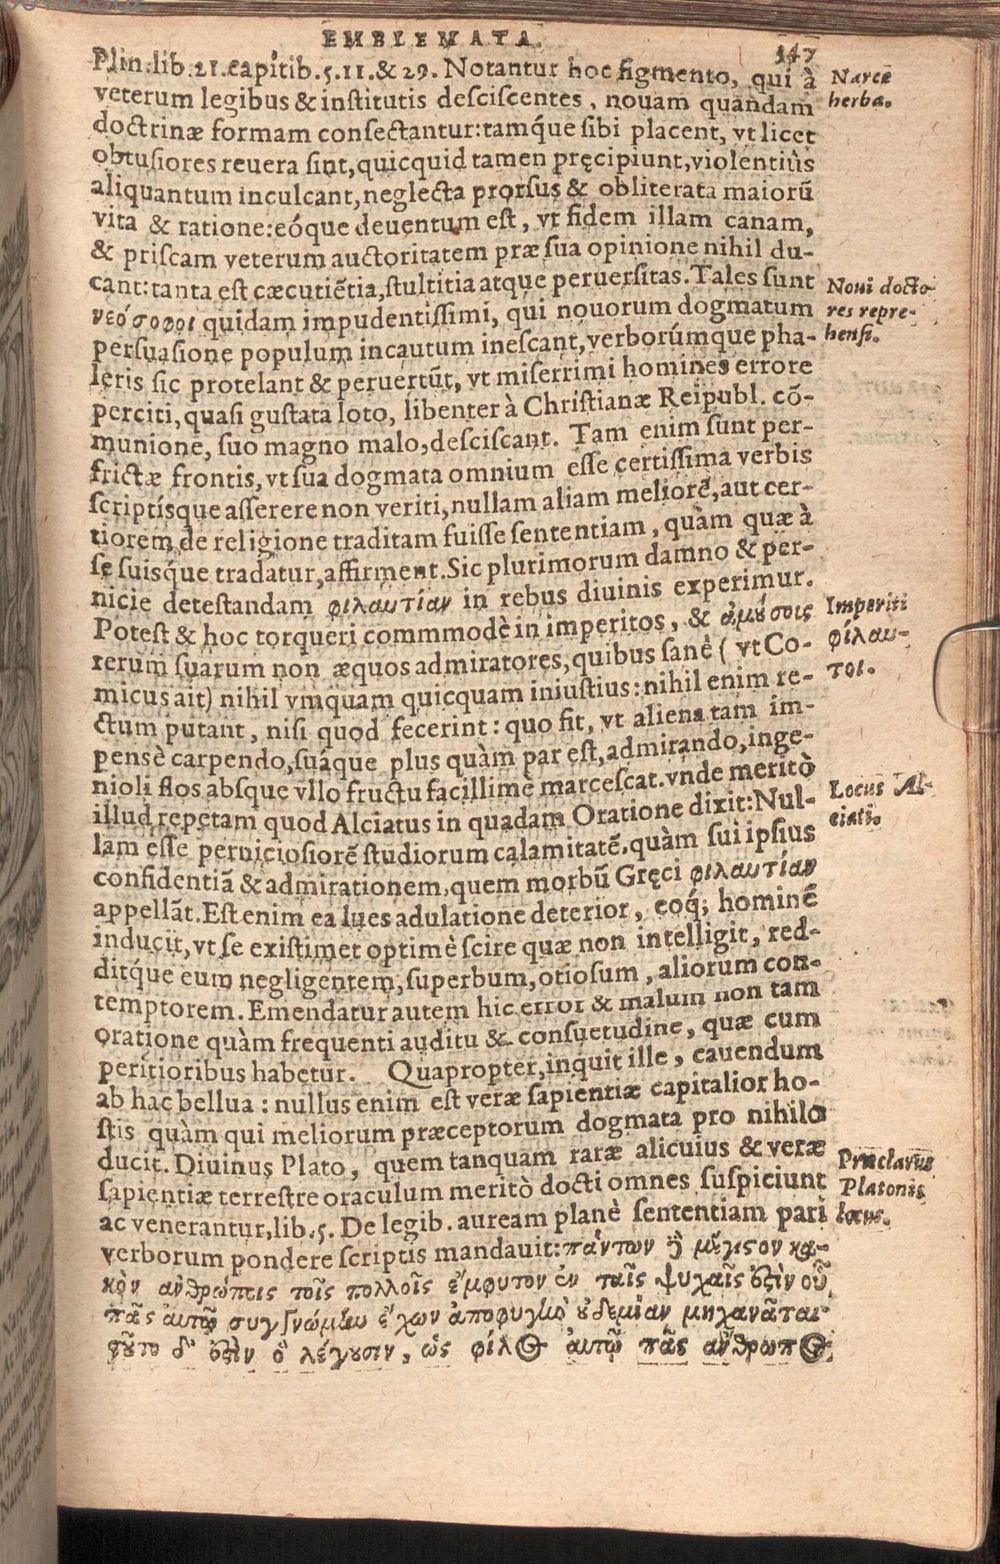 EMBLEMATA. 347
Plin.lib.21.capitib.5.11.& 29. Notantur hoc figmento, qui à
veterum legibus & institutis desciscentes, nouam quandam
doctrinæ formam consectantur:tamq́ue sibi placent, vt licet
obtusiores reuera sint,quicquid tamen pręcipiunt,violentiùs
aliquantum inculcant,neglecta prorsus & obliterata maiorũ
vita & ratione:eóque deuentum est, vt fidem illam canam,
& priscam veterum auctoritatem præ sua opinione nihil du-
cant:tanta est cæcutiẽtia,stultitia atque peruersitas.Tales sunt
νεόσοφοι quidam impudentissimi, qui nouorum dogmatum
persuasione populum incautum inescant,verborúmque pha-
leris sic protelant & peruertũt, vt miserrimi homines errore
perciti,quasi gustata loto, libenter à Christianæ Reipubl. cõ-
munione, suo magno malo,desciscant. Tam enim sunt per-
frictæ frontis,vt sua dogmata omnium esse certissima verbis
scriptísque asserere non veriti,nullam aliam meliorẽ,aut cer-
tiorem de religione traditam fuisse sententiam, quàm quæ à
se suisq́ue tradatur,affirment.Sic plurimorum damno & per-
nicie detestandam φιλαυτίαν in rebus diuinis experimur.
Potest & hoc torqueri commmodè in imperitos, & ἀμούσοις
rerum suarum non æquos admiratores,quibus sanè (vt Co-
micus ait) nihil vmquam quicquam iniustius:nihil enim re-
ctum putant, nisi quod fecerint: quo fit, vt aliena tam im-
pensè carpendo,suáque plus quàm par est,admirando,inge-
nioli flos absque vllo fructu facillimè marcescat.vnde meritò
illud repetam quod Alciatus in quadam Oratione dixit:Nul-
lam esse perniciosiorẽ studiorum calamitatẽ,quàm sui ipsius
confidentiã & admirationem,quem morbũ Gręci φιλαυτίαν
appellãt.Est enim ea lues adulatione deterior, eoq́; hominẽ
inducit,vt se existimet optimè scire quæ non intelligit, red-
ditq́ue eum negligentem,superbum,otiosum, aliorum con-
temptorem.Emendatur autem hic error & malum non tam
oratione quàm frequenti auditu & consuetudine, quæ cum
peritioribus habetur. Quapropter,inquit ille, cauendum
ab hac bellua: nullus enim est veræ sapientiæ capitalior ho-
stis quàm qui meliorum præceptorum dogmata pro nihilo
ducit. Diuinus Plato, quem tanquam raræ alicuius & veræ
sapientiæ terrestre oraculum meritò docti omnes suspiciunt
ac venerantur,lib.5.De legib.auream planè sententiam pari
verborum pondere scriptis mandauit:πάντων ἢ μέγιστον κα-
κὸν ἀνθρώποις τοῖς πολλοῖς ἔμφυτον ἐν ταῖς ψυχαῖς ὅξὶν οὗ
πᾶς αὑτῷ συγγνώμην ἔχων ἀποφυγὴν οὐδεμίαν μηχανᾶται·
τοῦτο δ' ὅξὶν ὃ λέγουσιν, ὡς φίλος αὑτῷ πᾶς ἄνθρωπος
Narce
herba.
Noui docto-
res repre-
hensi.
Imperiti
φίλαυ-
τοι.
Locus Al-
ciati.
Præclarus
Platonis
locus.